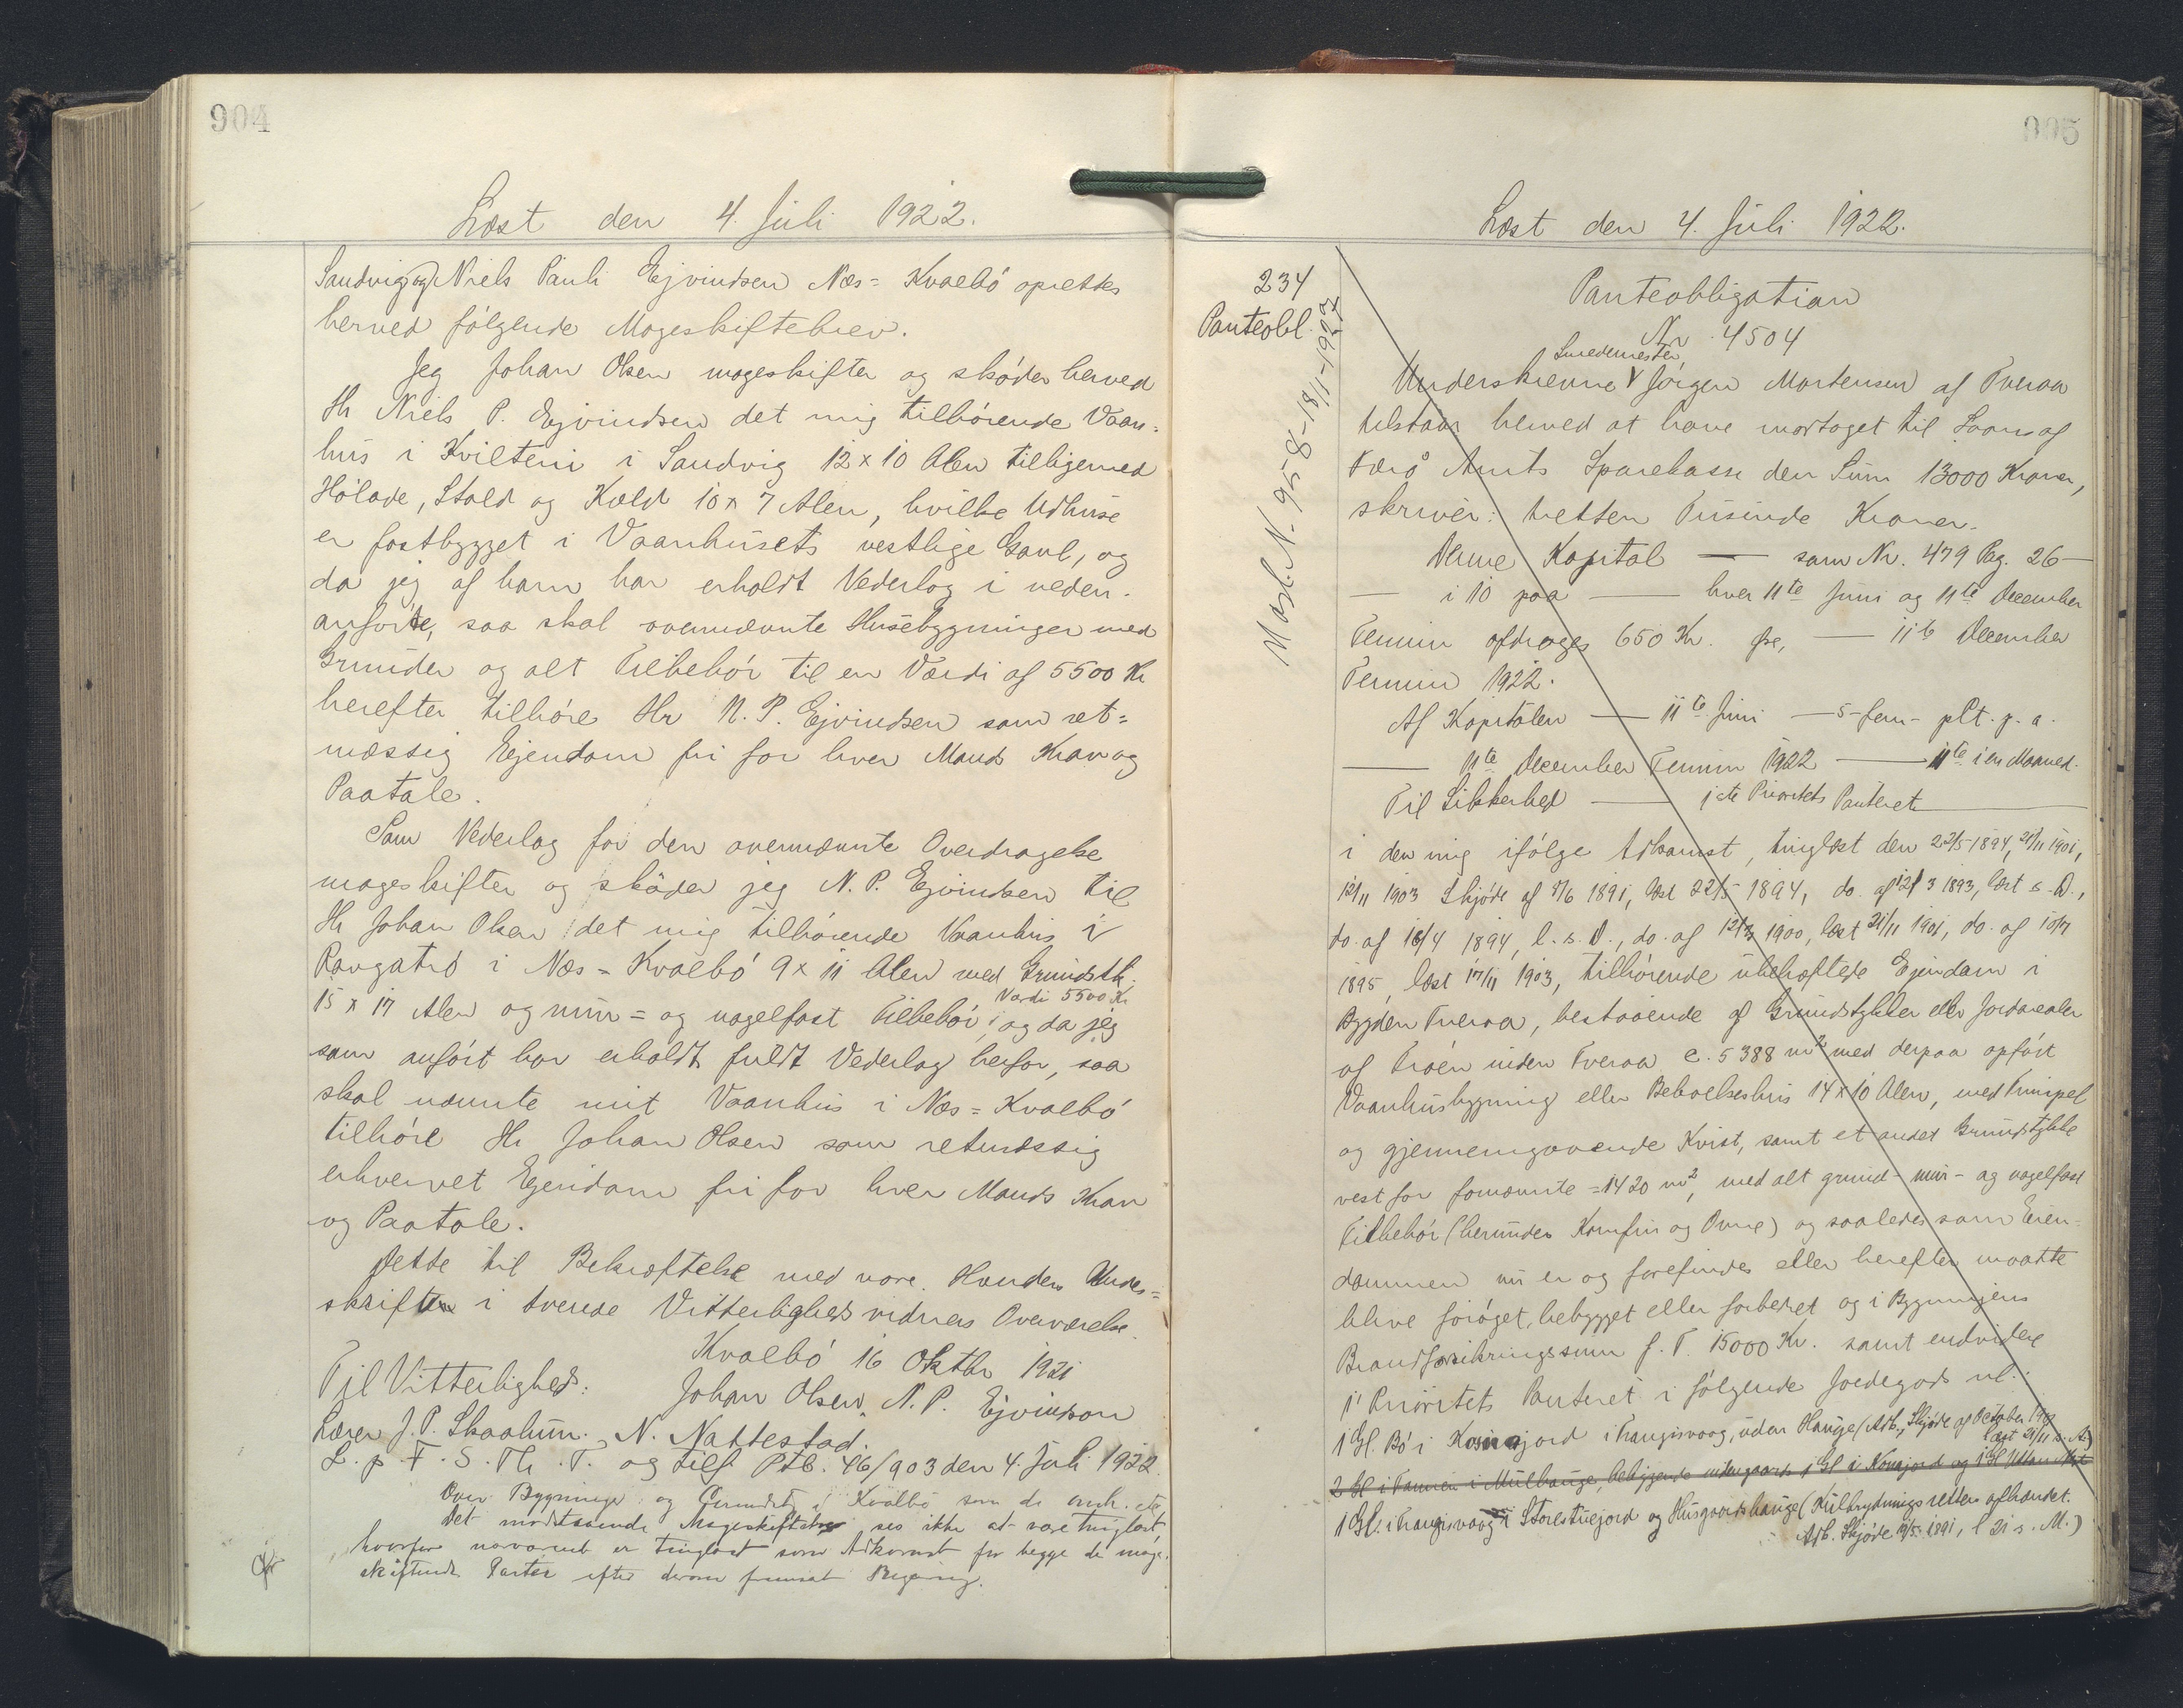 904
Læst den 4. Juli 1922.
Sandvig og Niels Pauli Ejvindsen Næs = Kvalbö oprettes
herved fölgende Mageskiftebrev.
Jeg Johan Olsen mageskifter og sköder herved
Hr Niels P. Ejvindsen det mig tilhörende Vaan-
hus i Kvilteni i Sandvig 12 x 10 Alen tilligemed
Hölade, Stald og Kæld 10 x 7 Alen, hvilke Udhuse
er fastbygget i Vaanhusets vestlige Gavl, og
da jeg af ham har erholdt Vederlag i neden-
anförte, saa skal ovennævnte Husebygninger med
Grunder og alt Tilbehör til en Værdi af 5500 Kr
herefter tilhöre Hr N. P. Ejvindsen som ret=
mæssig Ejendom fri for hver Mands Krav og
Paatale.
Som Vederlag for den ovennævnte Overdragelse
mageskifter og sköder jeg N. P. Ejvindsen til
Hr Johan Olsen det mig tilhörende Vaanhus i
Rangatró i Næs = Kvalbö 9 x 11 Alen med Grundstk.
15 x 17 Alen og mur = og nagelfast Tilbehör, Værdi 5500 Kr og da jeg
som anfört har erholdt fuldt Vederlag herfor, saa
skal nævnte mit Vaanhus i Næs = Kvalbö
tilhöre Hr Johan Olsen som retmæssig
erhvervet Ejendom fri for hver Mands Krav
og Paatale.
Dette til Bekræftelse med vore Hænders Under=
skrifter i tvende Vitterlighedsvidners Overværelse.
Kvalbö 16 Oktbr 1921
Til Vitterlighed: Johan Olsen N. P. Ejvindson
Lærer J. P. Skaalum. N. Nattestad.
L. p. F. S. Th. T. og tilf. Ptb. 46/903 den 4. Juli 1922.
Over Bygninger og Grundstk i Kvalbö som de
det modstaaende Mageskiftebrev ses ikke at være tinglæst,
hvorfor nærværende er tinglæst som Adkomst for begge de mage-
skiftende Parter efter derom fremsat Begæring.
905
Læst den 4. Juli 1922.
234
Panteobl.
Mosl. N. 958-18/11-1927
Panteobligation
Nr 4504
Smedemester
Underskrevne Jörgen Mortensen af Tveraa
tilstaar herved at have modtaget til Laans af
Færö Amts Sparekasse den Sum 13000 Kroner,
skriver: tretten Tusinde Kroner.
Denne Kapital — som Nr. 479 Pag. 26 —
— i 10 paa — hver 11te Juni og 11te December
Termin afdrages 650 Kr. — 11te December
Termin 1922.
Af Kapitalen — 11te Juni — 5 - fem - pCt. p. a.
— 11te December Termin 1922 — 11te i en Maaned.
Til Sikkerhed — 1ste Prioritets Panteret —
i den mig ifölge Adkomst, tinglæst den 22/5 1894, 21/11 1901,
12/11 1903 Skjöde af 8/6 1891, læst 22/5 1894, do. af 12/3 1893, læst s. D.,
do. af 18/4 1894, l. s. D., do. af 12/3 1900, læst 21/11 1901, do. af 10/7
1895, læst 17/11 1903, tilhörende ubehæftede Ejendom i
Bygden Tveraa, bestaaende af Grundstykker eller Jordarealer
af Tróen inden Tveraa c. 5388 m² med derpaa opfört
Vaanhusbygning eller Beboelseshus 14 x 10 Alen, med Trempel
og gjennemgaaende Kvist, samt et andet Grundstykke
vest for fornævnte = 1420 m², med alt grund- mur- og nagelfast
Tilbehör (herunder Komfur og Ovne) og saaledes som Eien-
dommen nu er og forefindes eller herefter maatte
blive foröget, bebygget eller forbedret og i Bygningens
Brandforsikringssum p. T. 15000 Kr. samt endvidere
1' Prioritet Panteret i fölgende Jordegods nl.:
1 Gl. Bö i Konujord i Trangisvaag, uden Hauge (Adk. Skjöde af October 1901
læst 21/11 s. A.)
2 Gl i Tannen i Mülhauge, beliggende udengaards 1 Gl i Konujord og 1 Gl Uttan
1 Gl. i Trangisvaag i Storestuejord og Husgaardshauge (Kulbrydningsretten afhændet.
Adk. Skjöde 19/5 1891, l 21 s. M.)